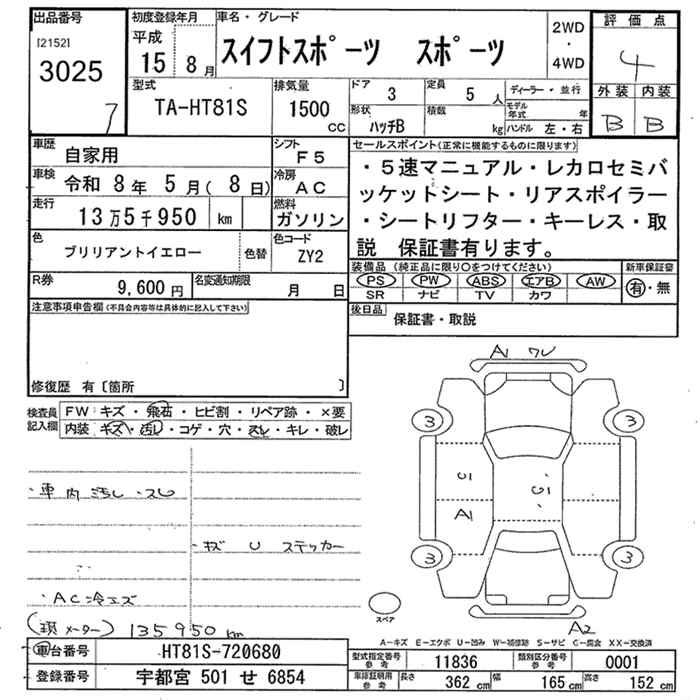 出品番号
[2152]
3025
7
初度登録年月
平成
15年 8月
車名・グレード
スイフトスポーツ スポーツ
2WD
・
4WD
評価点
4
外装 内装
B B
型式
TA-HT81S
排気量
1500
CC
ドア 3
定員 5 人
形状 ハッチB
積載 kg
ディーラー・並行
モデル年式 年
ハンドル 左・右
車歴 自家用
シフト F5
車検 令和 8年 5月(8日)
冷房 AC
走行 13万5千950 km
燃料 ガソリン
色 ブリリアントイエロー
色替
色コード ZY2
R券 9,600円
名変通知期限 月 日
セールスポイント(正常に機能するものに限ります)
・5速マニュアル・レカロセミバ
ッケットシート・リアスポイラー
・シートリフター・キーレス・取
説 保証書有ります。
装備品(純正品に限り○をつけてください)
新車保証書
PS PW ABS エアB AW
有・無
SR ナビ TV カワ
後日品 保証書・取説
注意事項申告欄(不具合内容等は具体的に記入して下さい)
修復歴 有〔箇所 〕
検査員記入欄
FW キズ・飛石・ヒビ割・リペア跡・×要
内装 キズ・汚レ・コゲ・穴・スレ・キレ・破レ
・車内汚レ・スレ
・キズ U ステッカー
・AC冷エズ
(現メーター) 135950km
A1 ワレ
3 3
U U
A1
3 3
スペア
A2
A―キズ E―エクボ U―凹み W―補修跡 S―サビ C―腐食 XX―交換済
車台番号 HT81S-720680
登録番号 宇都宮 501 せ 6854
型式指定番号 参考 11836
類別区分番号 参考 0001
車庫証明用 参考 長さ 362 cm 幅 165 cm 高さ 152 cm